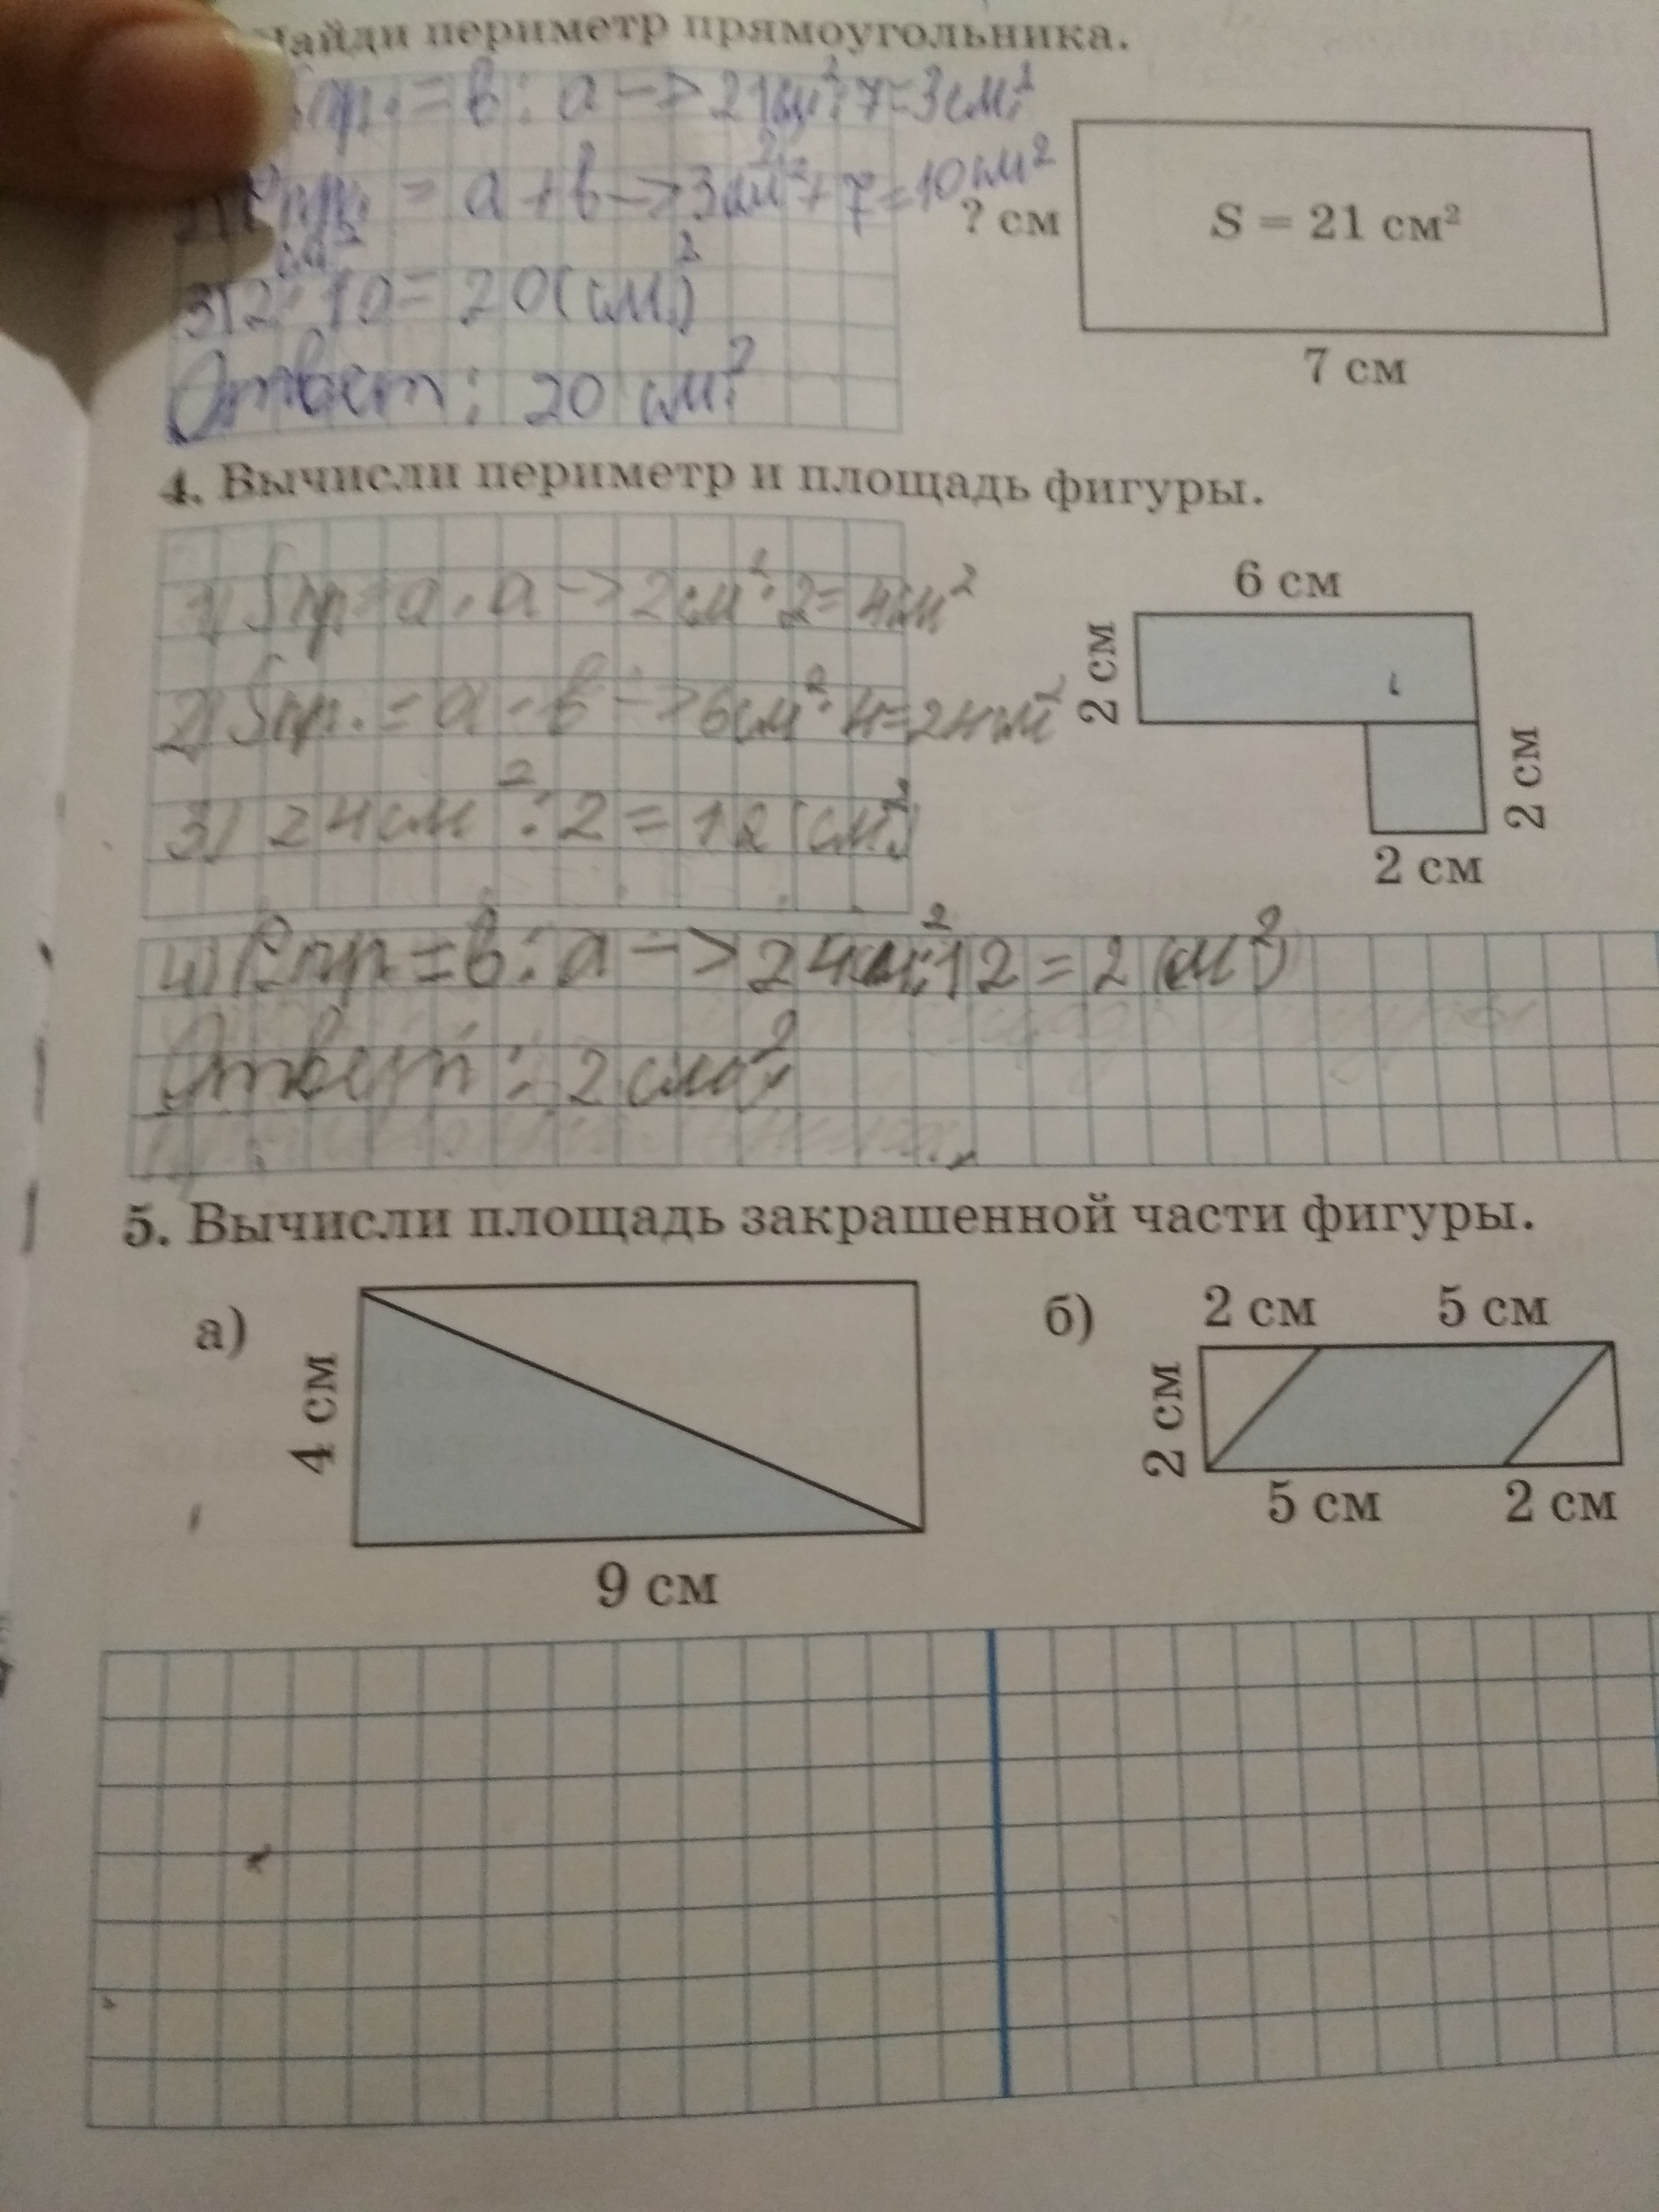 Найди периметр прямоугольника.
Sпр. = в : а -> 21см² : 7 = 3см²
2) Pпр. = а + в -> 3см² + 7 = 10см²
? см
S = 21 см²
3) 2 · 10 = 20 (см²)
7 см
Ответ: 20 см²
4. Вычисли периметр и площадь фигуры.
6 см
1) Sпр = а · а -> 2см² · 2 = 4см²
2 см
2) Sпр. = а · в -> 6см² · 4 = 24см²
2 см
3) 24см² : 2 = 12 (см²)
2 см
4) Pпр. = в : а -> 24см² : 12 = 2 (см²)
Ответ: 2 см²
5. Вычисли площадь закрашенной части фигуры.
а)
4 см
9 см
б)
2 см 5 см
2 см
5 см 2 см